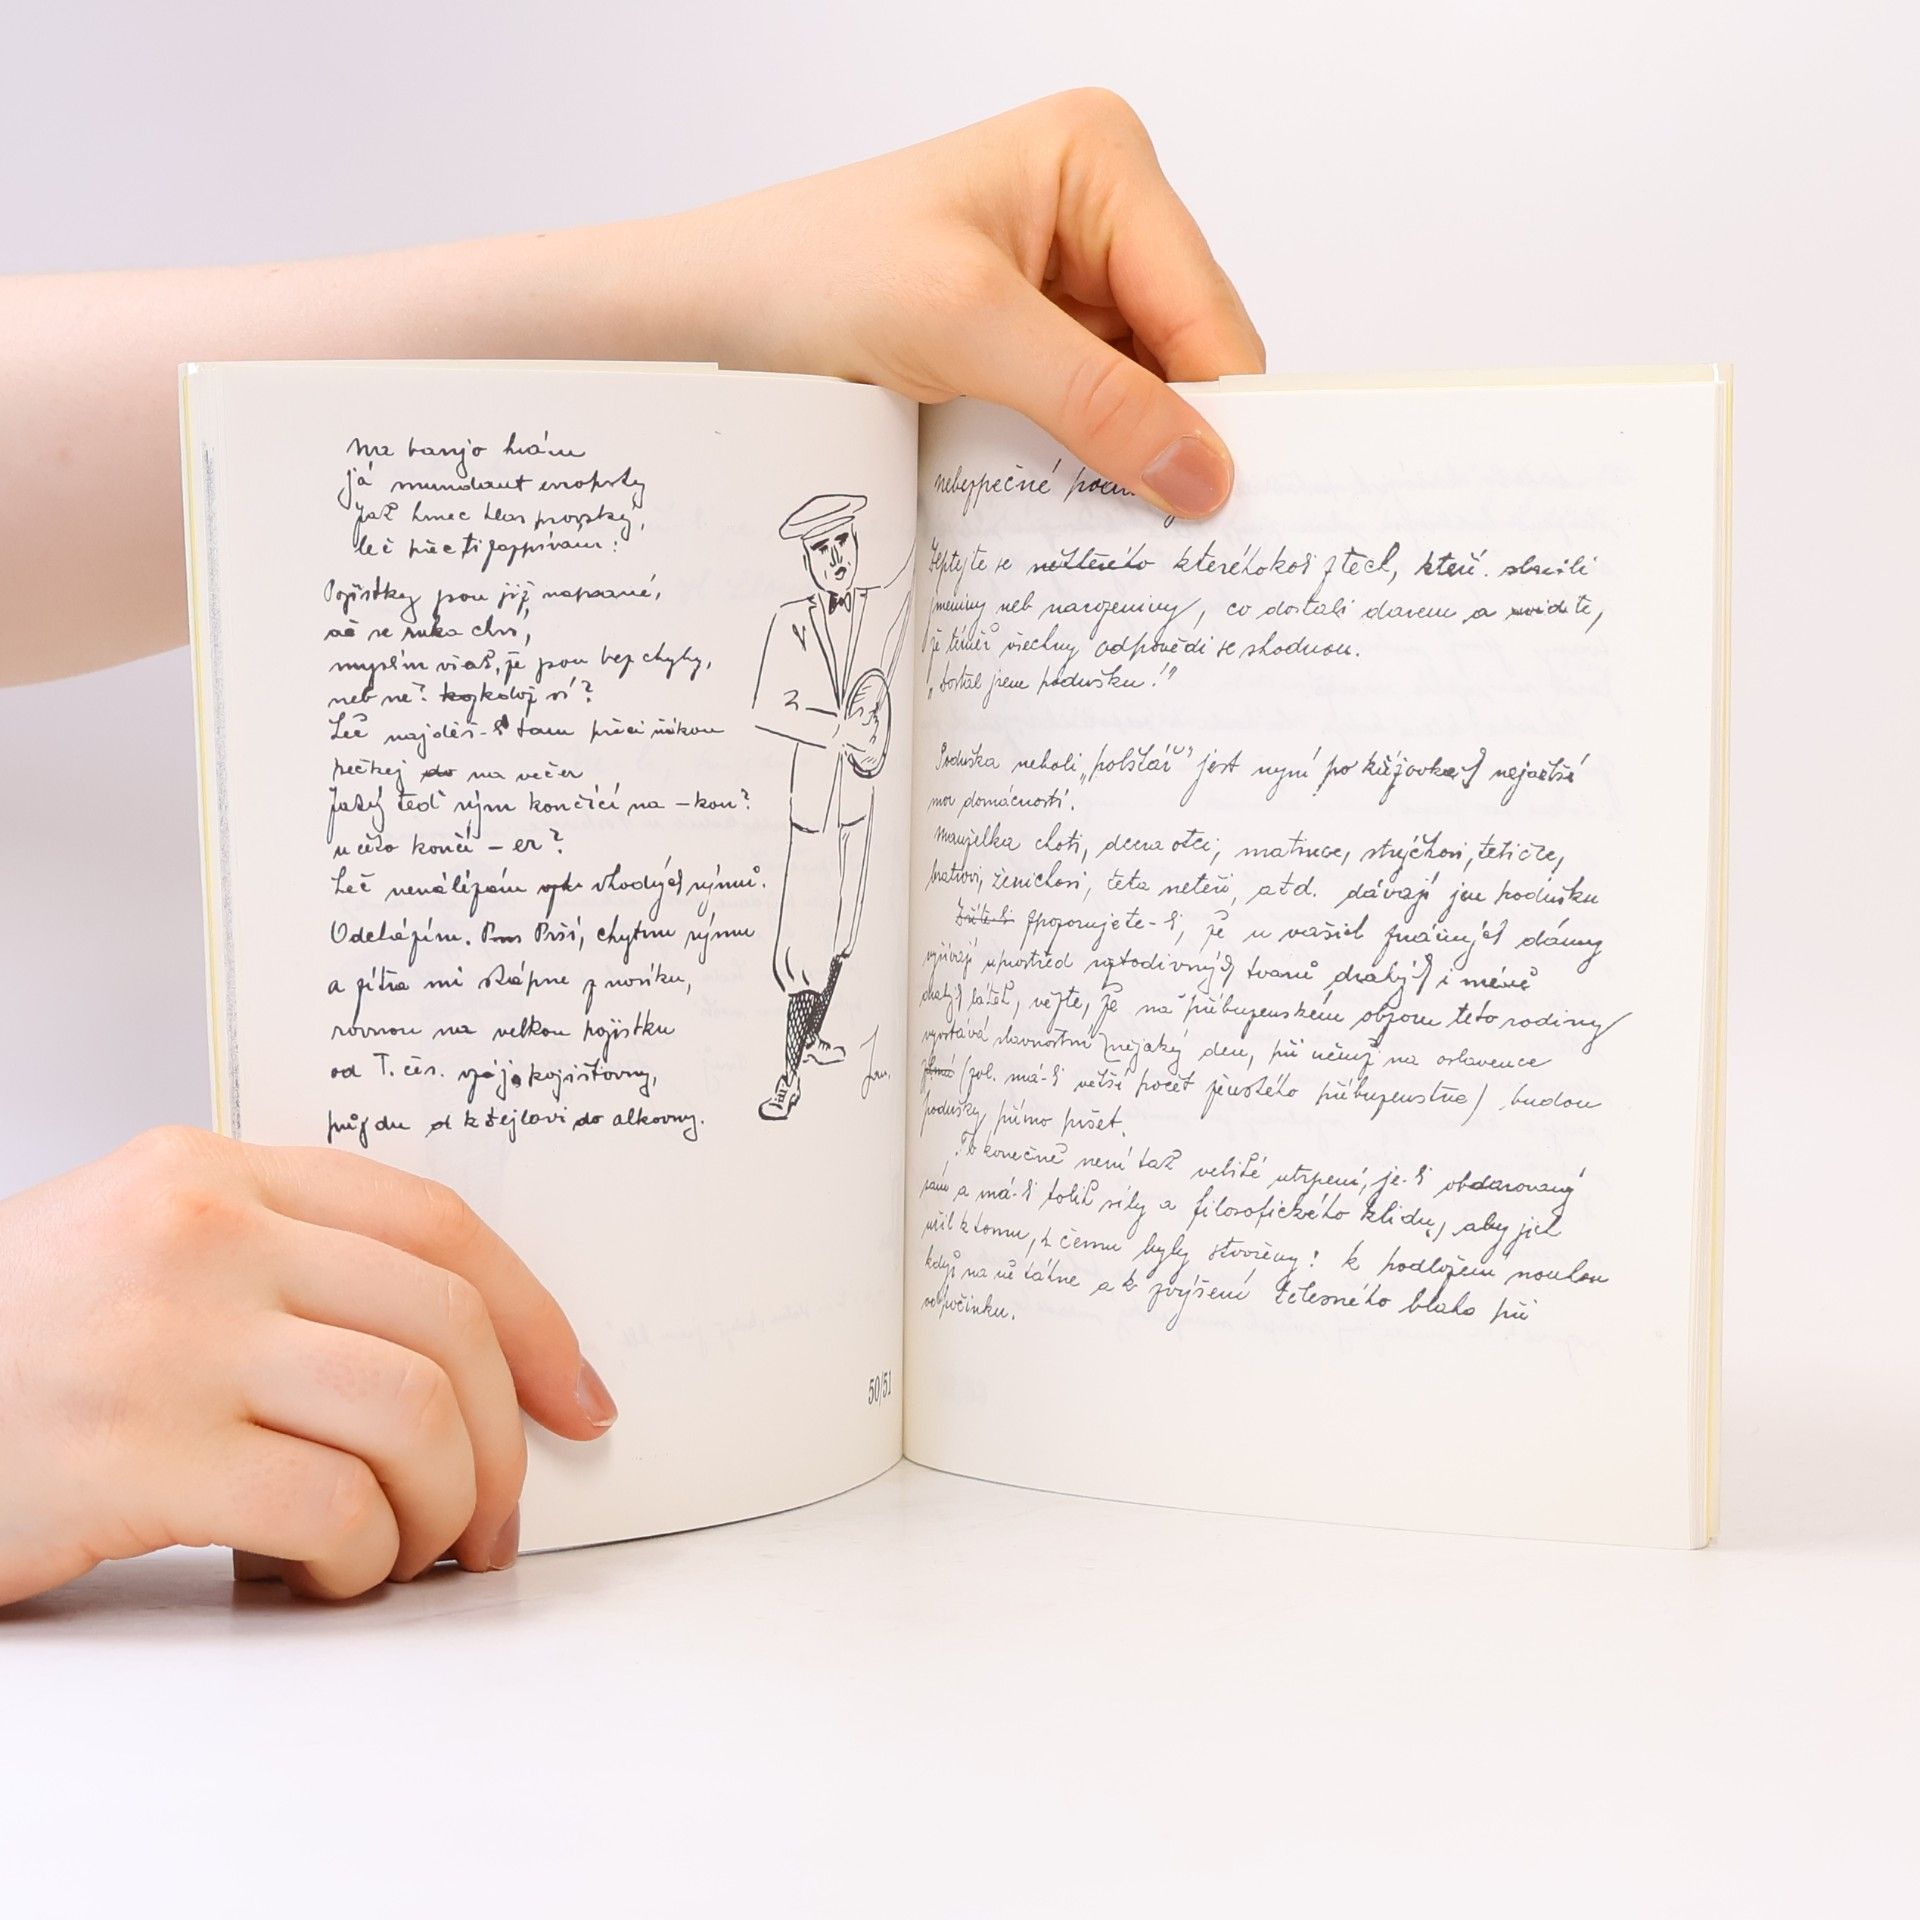 Na banjo hrám
já mundant evropský
jak hrnec hlas prorský,
leč přec ti zazpívám:
Pojistky jsou již napsané,
ač se ruka chví,
myslím však, že jsou bez chyby,
neb ne? kdož ví?
Leč najdeš-li tam přeci nákou
nečkej do na večer
Jaký teď rým končící na -kou?
u čeho končí - er?
Leč nenalézám vhodných rýmů.
Odcházím. Prší, chytnu rýmu
a zítra mi skápne z nosíku,
rovnou na velkou pojistku
od T. čes. vzáj. pojišťovny,
půjdu k Šejlovi do alkovny.
50/51
nebezpečné
Zeptejte se kteréhokoli z těch, kteří slavili
jmeniny neb narozeniny, co dostali darem a uvidíte,
že téměř všechny odpovědi se shodnou.
„Dostal jsem podušku!"
Poduška neboli „polštář" jest nyní po křížovkách nejvetší
mor domácností.
Manželka choti, dcera otci, matince, strýčkovi, tetičce,
bratrovi, ženichovi, četa neteří, atd. dávají jen podušku
Zpozorujete-li, že u vašich známých dámy
vyšívají uprostřed roztodivných tvarů drahých i méně
drahých látek, vězte, že na příbuzenském obzoru této rodiny
vyvstává slavnostní nějaký den, při němž na oslavence
(zvl. má-li větší počet ženského příbuzenstva) budou
podušky přímo pršet.
To konečně není tak veliké utrpení, je-li obdarovaný
pán a má-li tolik síly a filosofického klidu, aby jich
užil k tomu, k čemu byly stvořeny: k podložení nouhou
když na ně sáhne a k zvýšení tělesného blaha při
odpočinku.